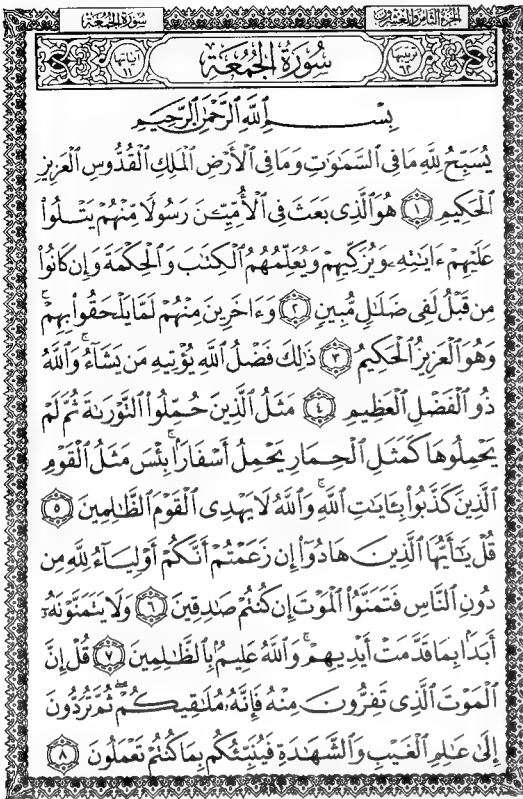 الجزء الثامن والعشرون
سورة الجمعة
ترتيبها ٦٢
سُورَةُ الجُمُعَةِ
آياتها ١١
بِسْمِ اللَّهِ الرَّحْمَٰنِ الرَّحِيمِ
يُسَبِّحُ لِلَّهِ مَا فِي السَّمَٰوَٰتِ وَمَا فِي الْأَرْضِ الْمَلِكِ الْقُدُّوسِ الْعَزِيزِ
الْحَكِيمِ ١ هُوَ الَّذِي بَعَثَ فِي الْأُمِّيِّـۧنَ رَسُولًا مِّنْهُمْ يَتْلُوا۟
عَلَيْهِمْ ءَايَٰتِهِۦ وَيُزَكِّيهِمْ وَيُعَلِّمُهُمُ الْكِتَٰبَ وَالْحِكْمَةَ وَإِن كَانُوا۟
مِن قَبْلُ لَفِي ضَلَٰلٍ مُّبِينٍ ٢ وَءَاخَرِينَ مِنْهُمْ لَمَّا يَلْحَقُوا۟ بِهِمْ ۚ
وَهُوَ الْعَزِيزُ الْحَكِيمُ ٣ ذَٰلِكَ فَضْلُ اللَّهِ يُؤْتِيهِ مَن يَشَآءُ ۚ وَاللَّهُ
ذُو الْفَضْلِ الْعَظِيمِ ٤ مَثَلُ الَّذِينَ حُمِّلُوا۟ التَّوْرَىٰةَ ثُمَّ لَمْ
يَحْمِلُوهَا كَمَثَلِ الْحِمَارِ يَحْمِلُ أَسْفَارًۢا ۚ بِئْسَ مَثَلُ الْقَوْمِ
الَّذِينَ كَذَّبُوا۟ بِـَٔايَٰتِ اللَّهِ ۚ وَاللَّهُ لَا يَهْدِي الْقَوْمَ الظَّٰلِمِينَ ٥
قُلْ يَٰٓأَيُّهَا الَّذِينَ هَادُوٓا۟ إِن زَعَمْتُمْ أَنَّكُمْ أَوْلِيَآءُ لِلَّهِ مِن
دُونِ النَّاسِ فَتَمَنَّوُا۟ الْمَوْتَ إِن كُنتُمْ صَٰدِقِينَ ٦ وَلَا يَتَمَنَّوْنَهُۥٓ
أَبَدًۢا بِمَا قَدَّمَتْ أَيْدِيهِمْ ۚ وَاللَّهُ عَلِيمٌۢ بِالظَّٰلِمِينَ ٧ قُلْ إِنَّ
الْمَوْتَ الَّذِي تَفِرُّونَ مِنْهُ فَإِنَّهُۥ مُلَٰقِيكُمْ ۖ ثُمَّ تُرَدُّونَ
إِلَىٰ عَٰلِمِ الْغَيْبِ وَالشَّهَٰدَةِ فَيُنَبِّئُكُم بِمَا كُنتُمْ تَعْمَلُونَ ٨